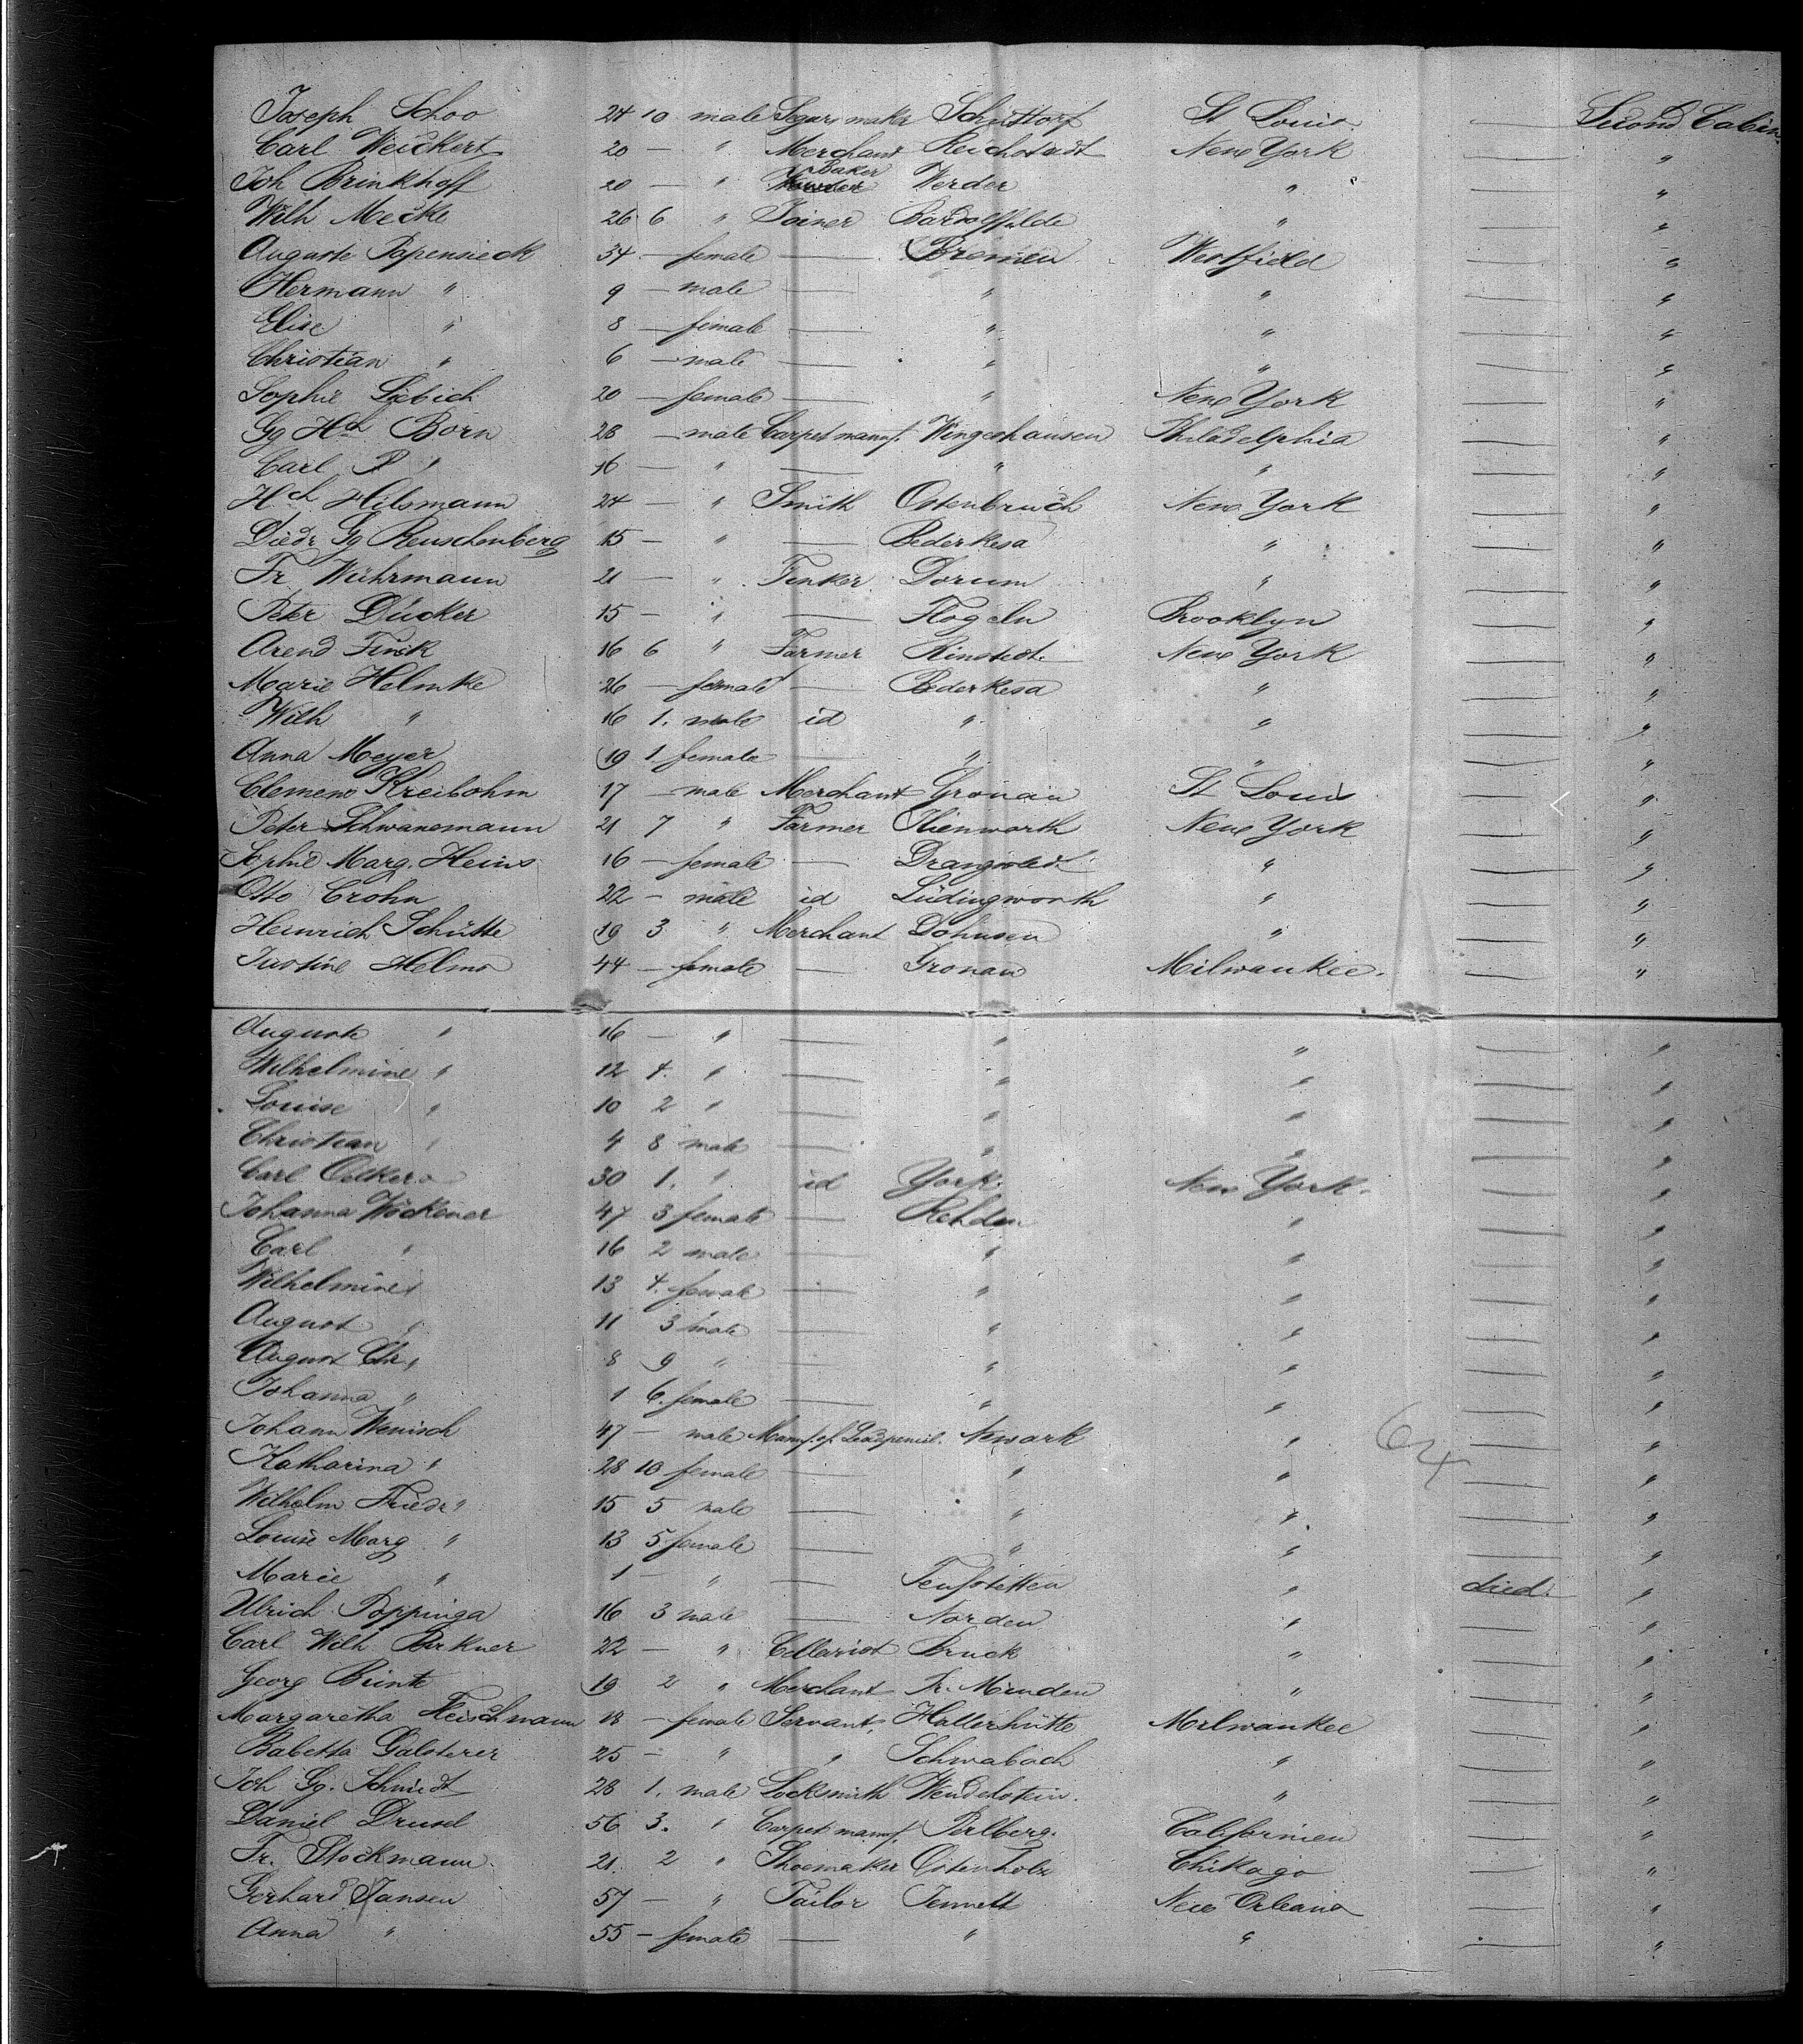 Joseph Schoo 24 10 male Segarsmaker Schüttorf St Louis — Second Cabin
Carl Weickert 20 — " Merchant Reichstadt New York — "
Joh Brinkhoff 20 — " Baker Werder " — "
Wilh Mecke 26 6 " Joiner " — "
Auguste Papensieck 34 — female — Bremen Westfield — "
Hermann " 9 — male — " " — "
Elise " 8 — female — " " — "
Christian " 6 — male — " " — "
Sophie Liebich 20 — female — " New York — "
Gg Hch Born 28 — male Carpet manuf. Wingeshausen Philadelphia — "
Carl " 16 — " — " " — "
Hch Hilsmann 24 — " Smith Ostenbruch New York — "
Diedr Gg Reuschenberg 15 — " — Bederkesa " — "
Fr Wührmann 21 — " Tinker Dorum " — "
Peter Dücker 15 — " — Flogeln Brooklyn — "
Arend Finck 16 6 " Farmer Rinstedt New York — "
Marie Helmke 26 — female — Bederkesa " — "
Wilh " 16 1. male id " " — "
Anna Meyer 19 1 female — " " — "
Clemens Kreibohm 17 — male Merchant Gronau St Louis — "
Peter Schwanemann 21 7 " Farmer Ihlienworth New York — "
Sophie Marg. Heins 16 — female — Drangstedt " — "
Otto Crohn 22 — male id Lüdingworth " — "
Heinrich Schütte 19 3 " Merchant Dohnsen " — "
Justine Helms 44 — female — Gronau Milwaukee. — "
Auguste " 16 — " — " " — "
Wilhelmine " 12 4. " — " " — "
Louise " 10 2 " — " " — "
Christian " 4 8 male — " " — "
Carl Oelkers 30 1. " id York. New York. — "
Johanna Wöckener 47 3 female — Rehden " — "
Carl " 16 2 male — " " — "
Wilhelmine " 13 4. female — " " — "
August " 11 3 male — " " — "
August Chr " 8 9 " — " " — "
Johanna " 1 6. female — " " — "
Johann Wenisch 47 — male Manuf. of Leadpencil. Newark " — "
64
Katharina " 28 10 female — " " — "
Wilhelm Friedr " 15 5 male — " " — "
Louise Marg " 13 5 female — " " — "
Marie " 1 — " — " died. "
Ulrich Poppinga 16 3 male — Norden " — "
Carl Wilh Birkner 22 — " Cellarist Bruck " — "
Georg Brinte 19 2 " Merchant Pr. Minden " — "
Margaretha Fleischmann 18 — female Servant Hallerhütte Milwaukee — "
Babetta Galsterer 25 — " " Schwabach " — "
Joh Gg. Schmidt 28 1. male Locksmith Wendelstein. " — "
Daniel Drusel 56 3. " Carpet manuf. Perlberg. Californien — "
Fr. Stockmann 21. 2 " Shoemaker Ostenholz Chikago — "
Gerhard Jansen 57 — " Tailor Jennelt New Orleans — "
Anna " 55 — female — " " — "